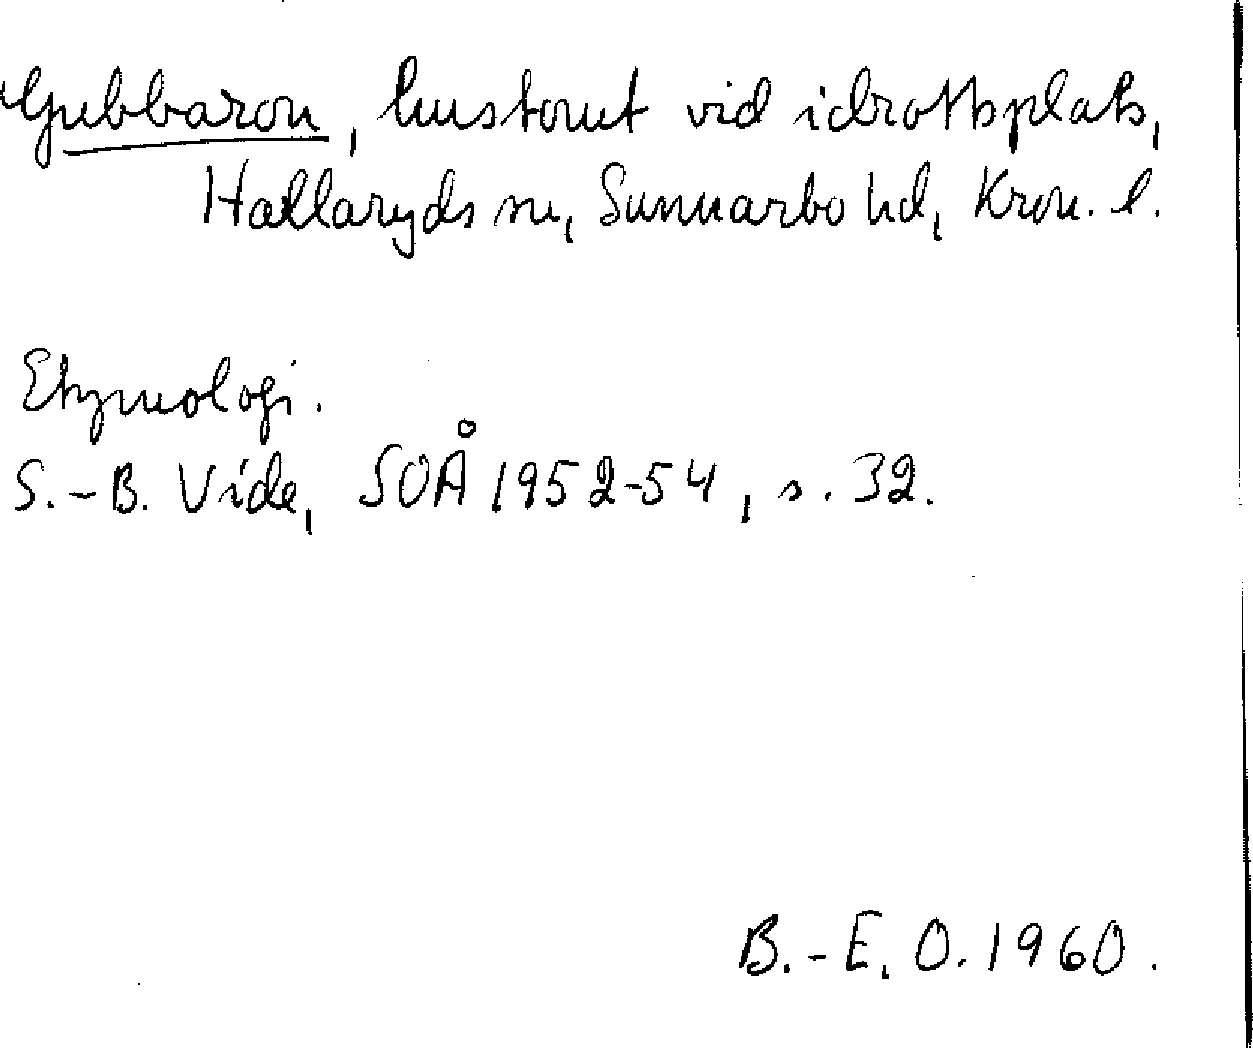 Gubbaron, hustomt vid idrottsplats,
Hallaryds sn, Sunnarbo hd, Kron. l.
Etymologi.
S.-B. Vide, SOÅ 1952-54, s. 32.
B.-E. O. 1960.